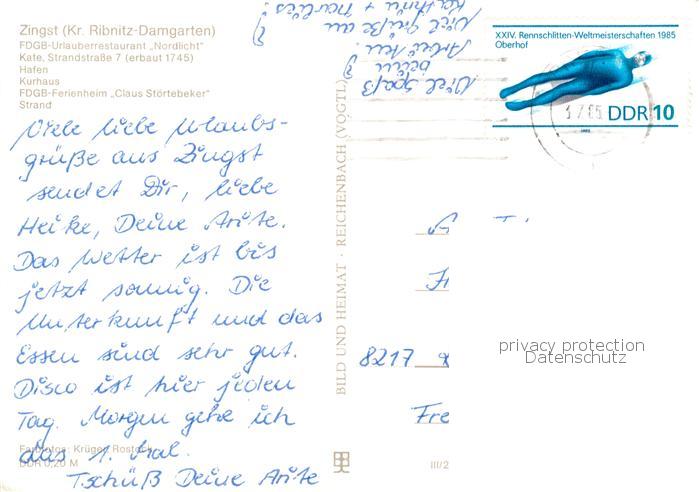 Zingst (Kr. Ribnitz-Damgarten)
FDGB-Urlauberrestaurant „Nordlicht"
Kate, Strandstraße 7 (erbaut 1745)
Hafen
Kurhaus
FDGB-Ferienheim „Claus Störtebeker"
Strand
Viele liebe Urlaubs-
grüße aus Zingst
sendet Dir, liebe
Heike, Deine
Das Wetter ist bis
jetzt sonnig. Die
Unterkunft und das
Essen sind sehr gut.
Disco ist hier jeden
Tag. Morgen gehe ich
das 1. Mal.
Tschüß Deine
Farbfotos: Krüger, Rostock
DDR 0,20 M
Viel Spaß
beim
Viel Grüße an
BILD UND HEIMAT · REICHENBACH (VOGTL)
III/2
XXIV. Rennschlitten-Weltmeisterschaften 1985
Oberhof
DDR 10
8217
Fre
privacy protection
Datenschutz